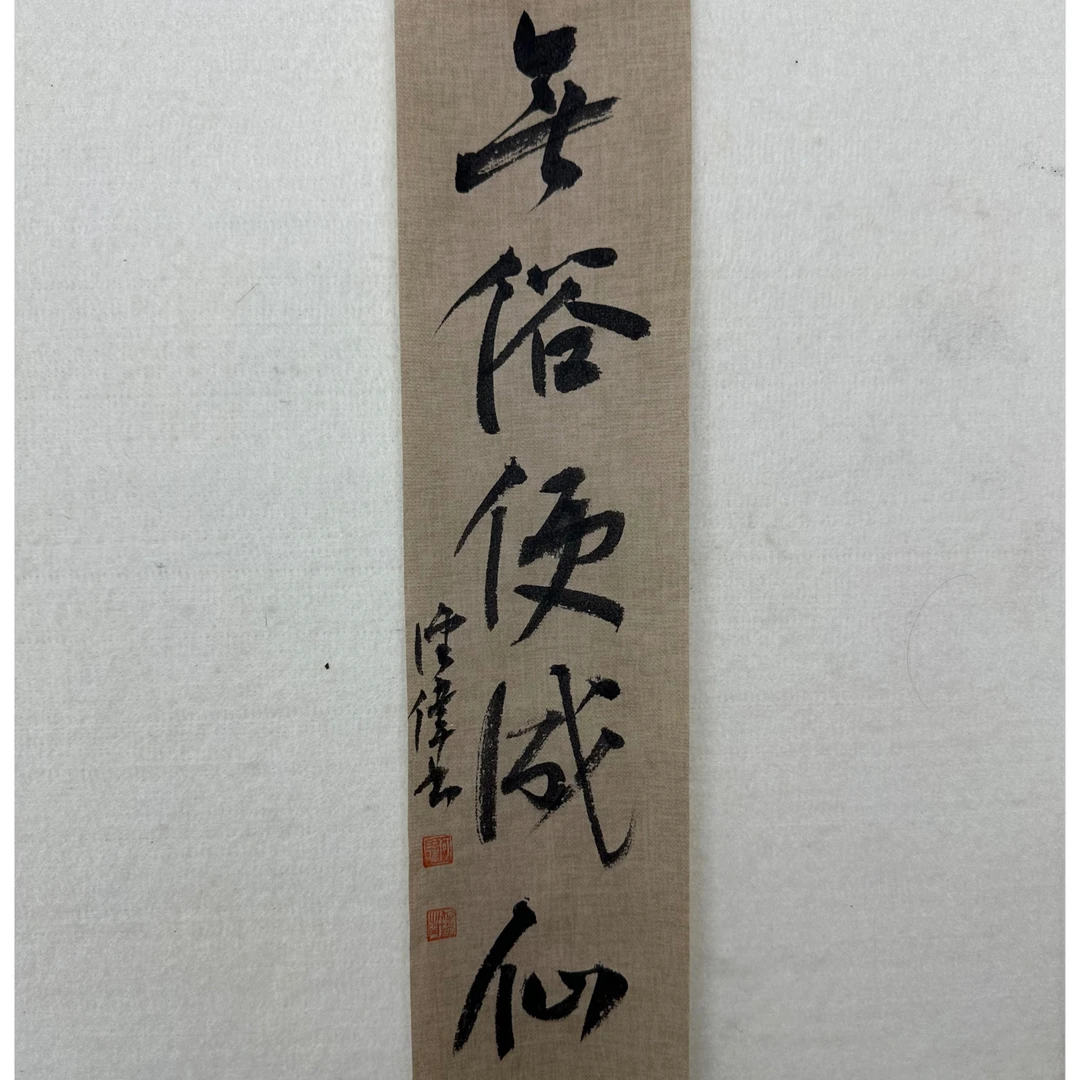 無俗便成仙
偉書